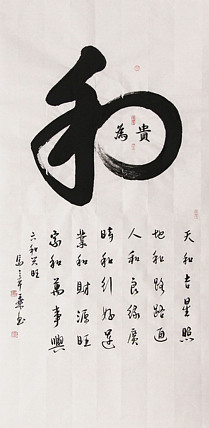 和
為貴
天和吉星照
地和路路通
人和良緣廣
時和引好運
業和財源旺
家和萬事興
六和興旺